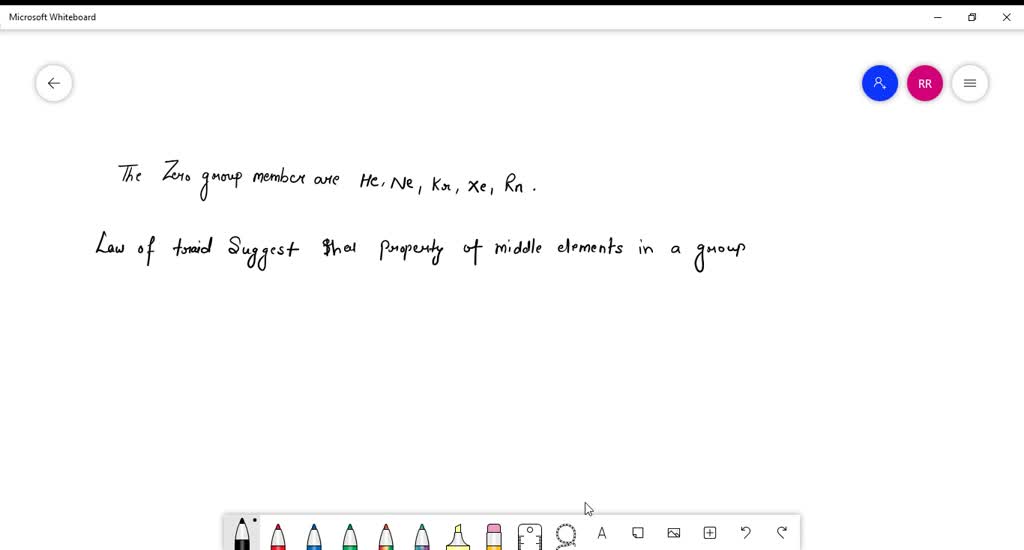 Microsoft Whiteboard
RR
The Zero group member are He, Ne, Kr, Xe, Rn.
Law of traid Suggest that property of middle elements in a group
A